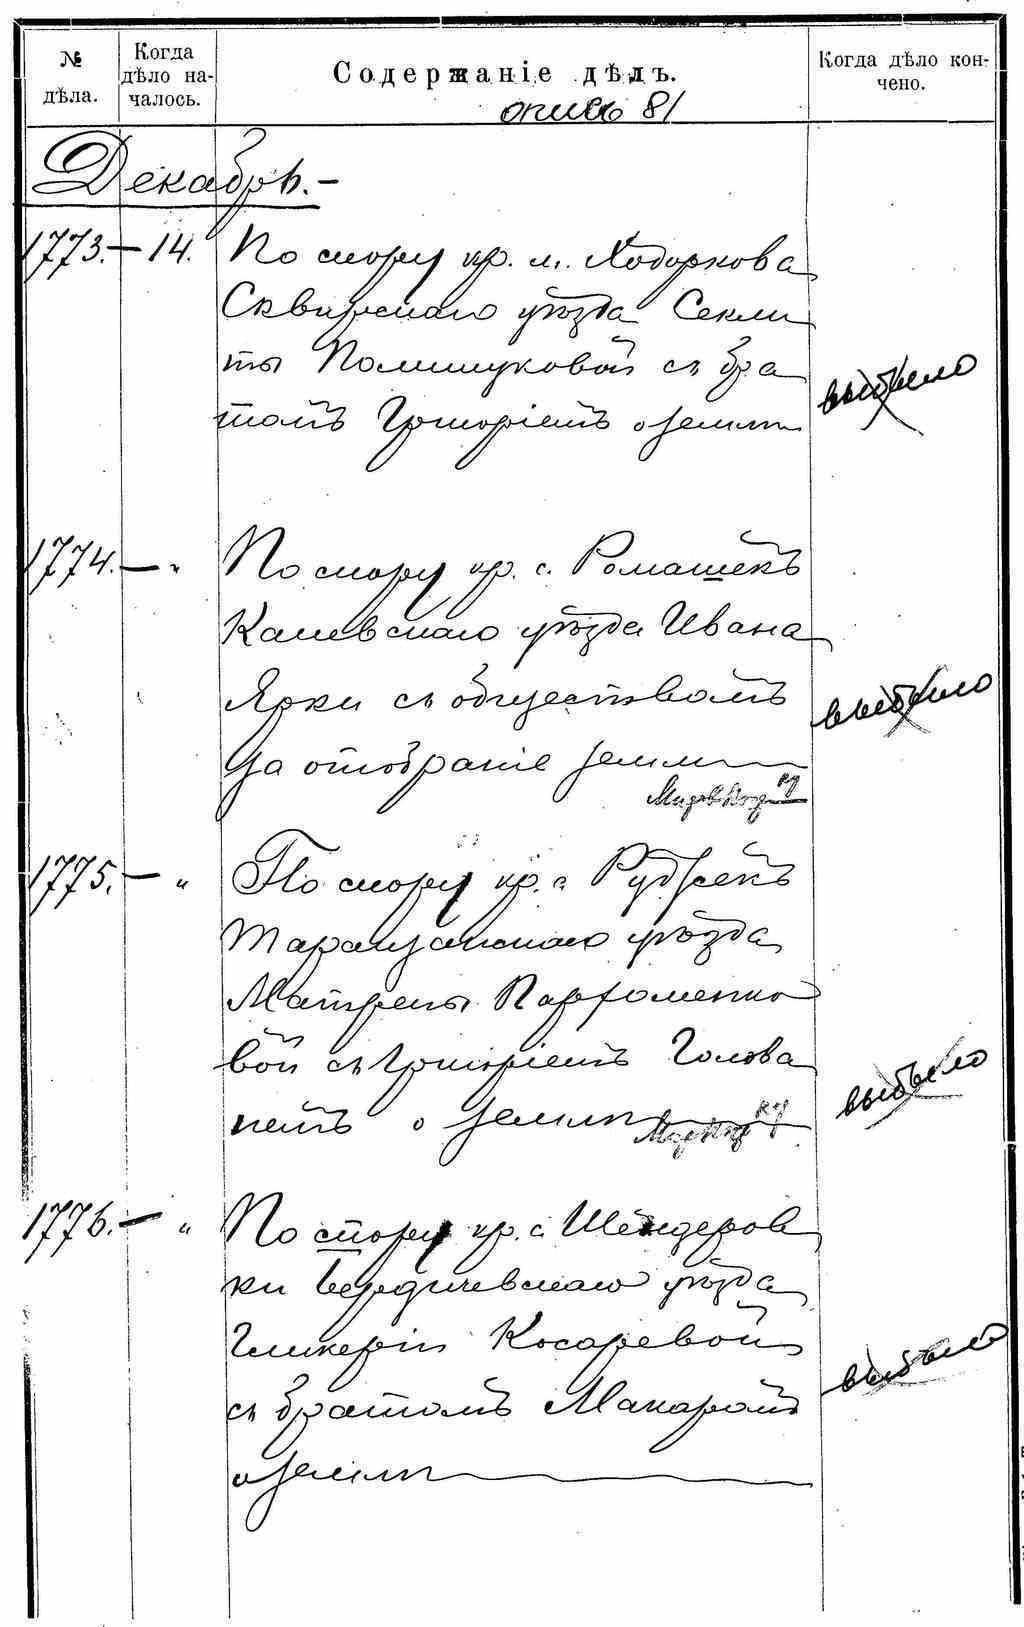 № дѣла.
Когда дѣло на-
чалось.
Содержаніе дѣлъ.
Когда дѣло кон-
чено.
опись 81
Декабрь.-
1773.- 14. По спору кр. м. Ходоркова
Сквирскаго уѣзда Секли
ты Полищуковой съ бра
томъ Григоріемъ о землѣ
выбыло
1774. - " По спору кр. с. Ромашекъ
Каневскаго уѣзда Ивана
Ярки съ обществомъ
за отобраніе земли
выбыло
1775. - " По спору кр. с. Рудосекъ
Таращанскаго уѣзда
Матрены Пархоменко
вой съ Григоріемъ Голова
немъ о землѣ
выбыло
1776. - " По спору кр. с. Шендеров
ки Бердичевскаго уѣзда
Гликеріи Косаревой
съ братомъ Макаромъ
о землѣ
выбыло